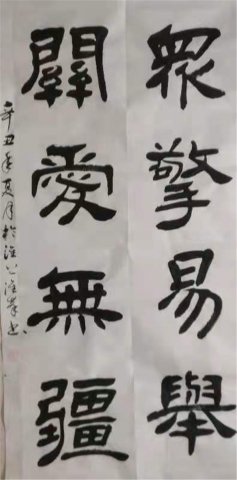 眾擎易舉
關愛無疆
辛丑年夏月於